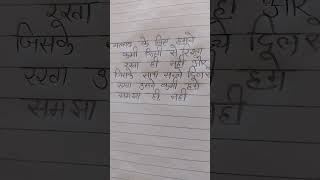 मतलब के लिए हमने
कभी किसी से रिश्ता
रखा ही नहीं और
जिसके साथ सच्चे दिल से
रखा उसने कभी हमे
समझा ही नहीं